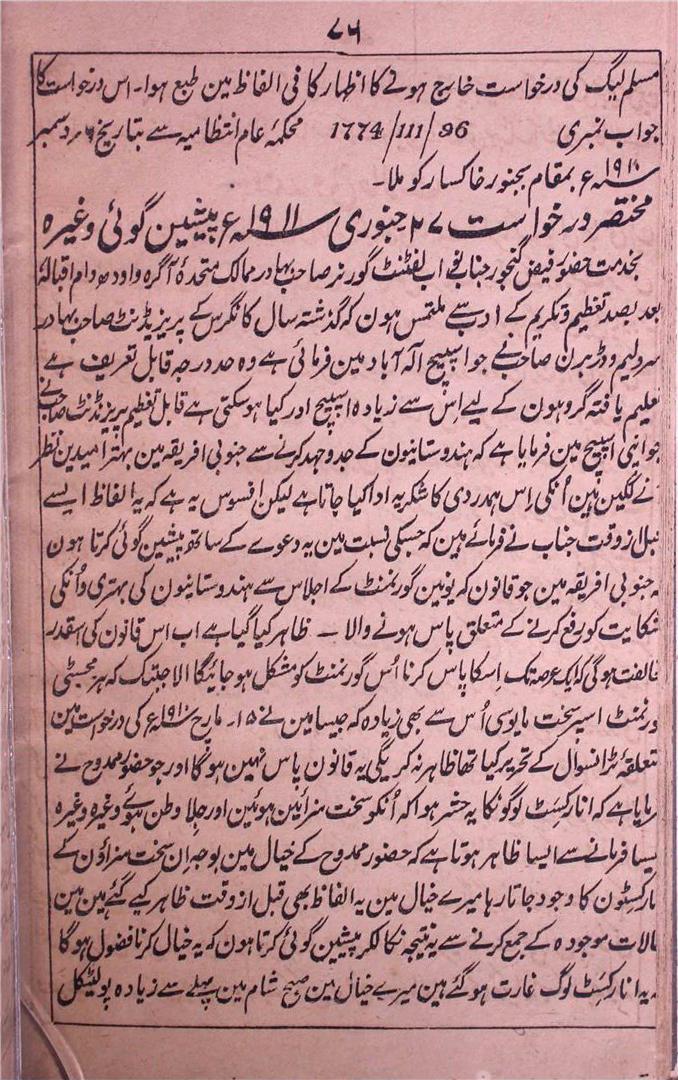 ۷۶
مسلم لیگ کی درخواست خارج ہونے کا اظہار کافی الفاظ مین طبع ہوا۔ اس درخواست کا
جواب نمبری 1774/111/96 محکمۂ عام انتظامیہ سے بتاریخ دسمبر
سنہ ۱۹۱۰ء بمقام بجنور خاکسار کو ملا۔
مختصر درخواست ۲۷ جنوری سنہ ۱۹۱۱ء پیشین گوئی وغیرہ
بخدمت حضور فیض گنجور جناب نواب لفٹنٹ گورنر صاحب بہادر ممالک متحدۂ آگرہ و اودھ دام اقبالہٗ
بعد بصد تعظیم و تکریم کے ادب سے ملتمس ہون کہ گذشتہ سال کانگرس کے پریزیڈنٹ صاحب بہادر
سر ولیم وڈربرن صاحب نے جو اسپیچ الہ آباد مین فرمائی ہے وہ حد درجہ قابل تعریف ہے
تعلیم یافتہ گروہون کے لیے اس سے زیادہ اسپیچ اور کیا ہو سکتی ہے قابل تعظیم پریزیڈنٹ صاحب نے
جو اپنی اسپیچ مین فرمایا ہے کہ ہندوستانیون کے جدوجہد کرنے سے جنوبی افریقہ مین بہتر امیدین نظر
آنے لگین ہین اُنکی اس ہمدردی کا شکریہ ادا کیا جاتا ہے لیکن افسوس یہ ہے کہ یہ الفاظ ایسے
قبل از وقت جناب نے فرمائے ہین کہ جسکی نسبت مین یہ دعوے کے ساتھ پیشین گوئی کرتا ہون
کہ جنوبی افریقہ مین جو قانون کہ یونین گورنمنٹ کے اجلاس سے ہندوستانیون کی بہتری و اُنکی
شکایت کو رفع کرنے کے متعلق پاس ہونے والا ۔ ظاہر کیا گیا ہے اب اس قانون کی اسقدر
مخالفت ہو گی کہ ایک عرصہ تک اسکا پاس کرنا اُس گورنمنٹ کو مشکل ہو جائیگا الا جبتک کہ ہز مجسٹی
گورنمنٹ اسپر سخت مایوسی اُس سے بھی زیادہ کہ جیسا مین نے ۱۵۔ مارچ سنہ ۱۹۱۰ء کی درخواست مین
متعلقۂ ٹرانسوال کے تحریر کیا تھا ظاہر نہ کریگی یہ قانون پاس نہین ہو گا اور جو حضور ممدوح نے
فرمایا ہے کہ انارکسٹ لوگونکا یہ حشر ہوا کہ اُنکو سخت سزائین ہوئین اور جلا وطن ہوئے وغیرہ وغیرہ
ایسا فرمانے سے ایسا ظاہر ہوتا ہے کہ حضور ممدوح کے خیال مین بوجہ ان سخت سزاؤن کے
انارکسٹون کا وجود جاتا رہا میرے خیال مین یہ الفاظ بھی قبل از وقت ظاہر کیے گئے ہین مین
حالات موجودہ کے جمع کرنے سے یہ نتیجہ نکالکر پیشین گوئی کرتا ہون کہ یہ خیال کرنا فضول ہو گا
کہ یہ انارکسٹ لوگ غارت ہو گئے ہین میرے خیال مین صبح شام مین پہلے سے زیادہ پولٹیکل